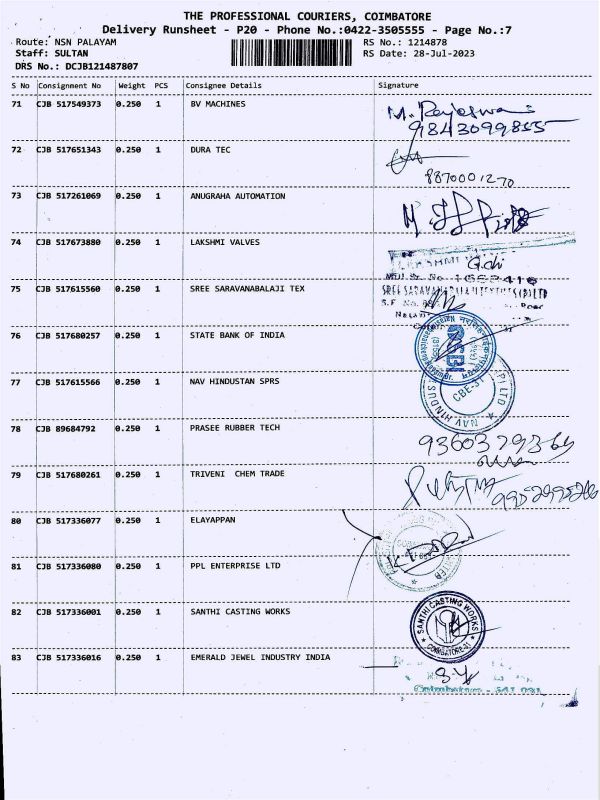 THE PROFESSIONAL COURIERS, COIMBATORE
Delivery Runsheet - P20 - Phone No.:0422-3505555 - Page No.:7
Route: NSN PALAYAM RS No.: 1214878
Staff: SULTAN RS Date: 28-Jul-2023
DRS No.: DCJB121487807
S No Consignment No Weight PCS Consignee Details Signature
71 CJB 517549373 0.250 1 BV MACHINES
9843099855
72 CJB 517651343 0.250 1 DURA TEC
8870001270
73 CJB 517261069 0.250 1 ANUGRAHA AUTOMATION
74 CJB 517673880 0.250 1 LAKSHMI VALVES
75 CJB 517615560 0.250 1 SREE SARAVANABALAJI TEX
76 CJB 517680257 0.250 1 STATE BANK OF INDIA
SBI
77 CJB 517615566 0.250 1 NAV HINDUSTAN SPRS
CBE-31
78 CJB 89684792 0.250 1 PRASEE RUBBER TECH
79 CJB 517680261 0.250 1 TRIVENI CHEM TRADE
80 CJB 517336077 0.250 1 ELAYAPPAN
81 CJB 517336080 0.250 1 PPL ENTERPRISE LTD
82 CJB 517336001 0.250 1 SANTHI CASTING WORKS
SANTHI CASTING WORKS
83 CJB 517336016 0.250 1 EMERALD JEWEL INDUSTRY INDIA